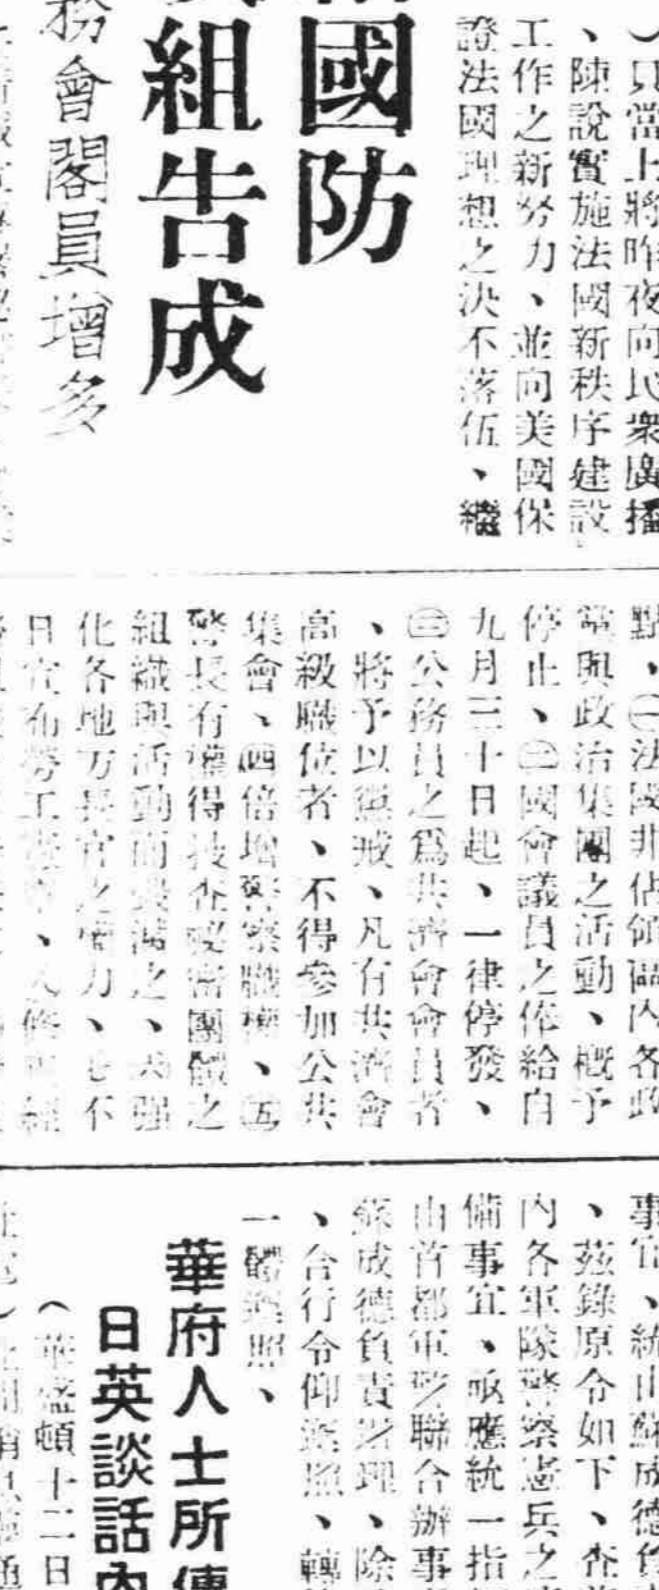 ）貝當上將昨夜向民衆廣播
、陳說實施法國新秩序建設
工作之新努力、並向美國保
證法國理想之決不落伍、繼
國防
組告成
務會閣員增多
點、㊀法國非佔領區內各政
黨與政治集團之活動、概予
停止、㊁國會議員之俸給自
九月三十日起、一律停發、
㊂公務員之爲共濟會會員者
、將予以懲戒、凡有共濟會
高級職位者、不得參加公共
集會、㊃倍增警察職權、㊄
警長有權得技查政黨團體之
組織與活動而 之、 强
化各地方長官之 力、 不
日宣布勞工 、
事宜、統由蘇成德負
、茲錄原令如下、查
內各軍隊警察憲兵之
備事宜、亟應統一指
由首都軍警聯合辦事
蘇成德負責辦理、除
、合行令仰遵照、轉
一體遵照、
華府人士所傳
日英談話內
（華盛頓十二日